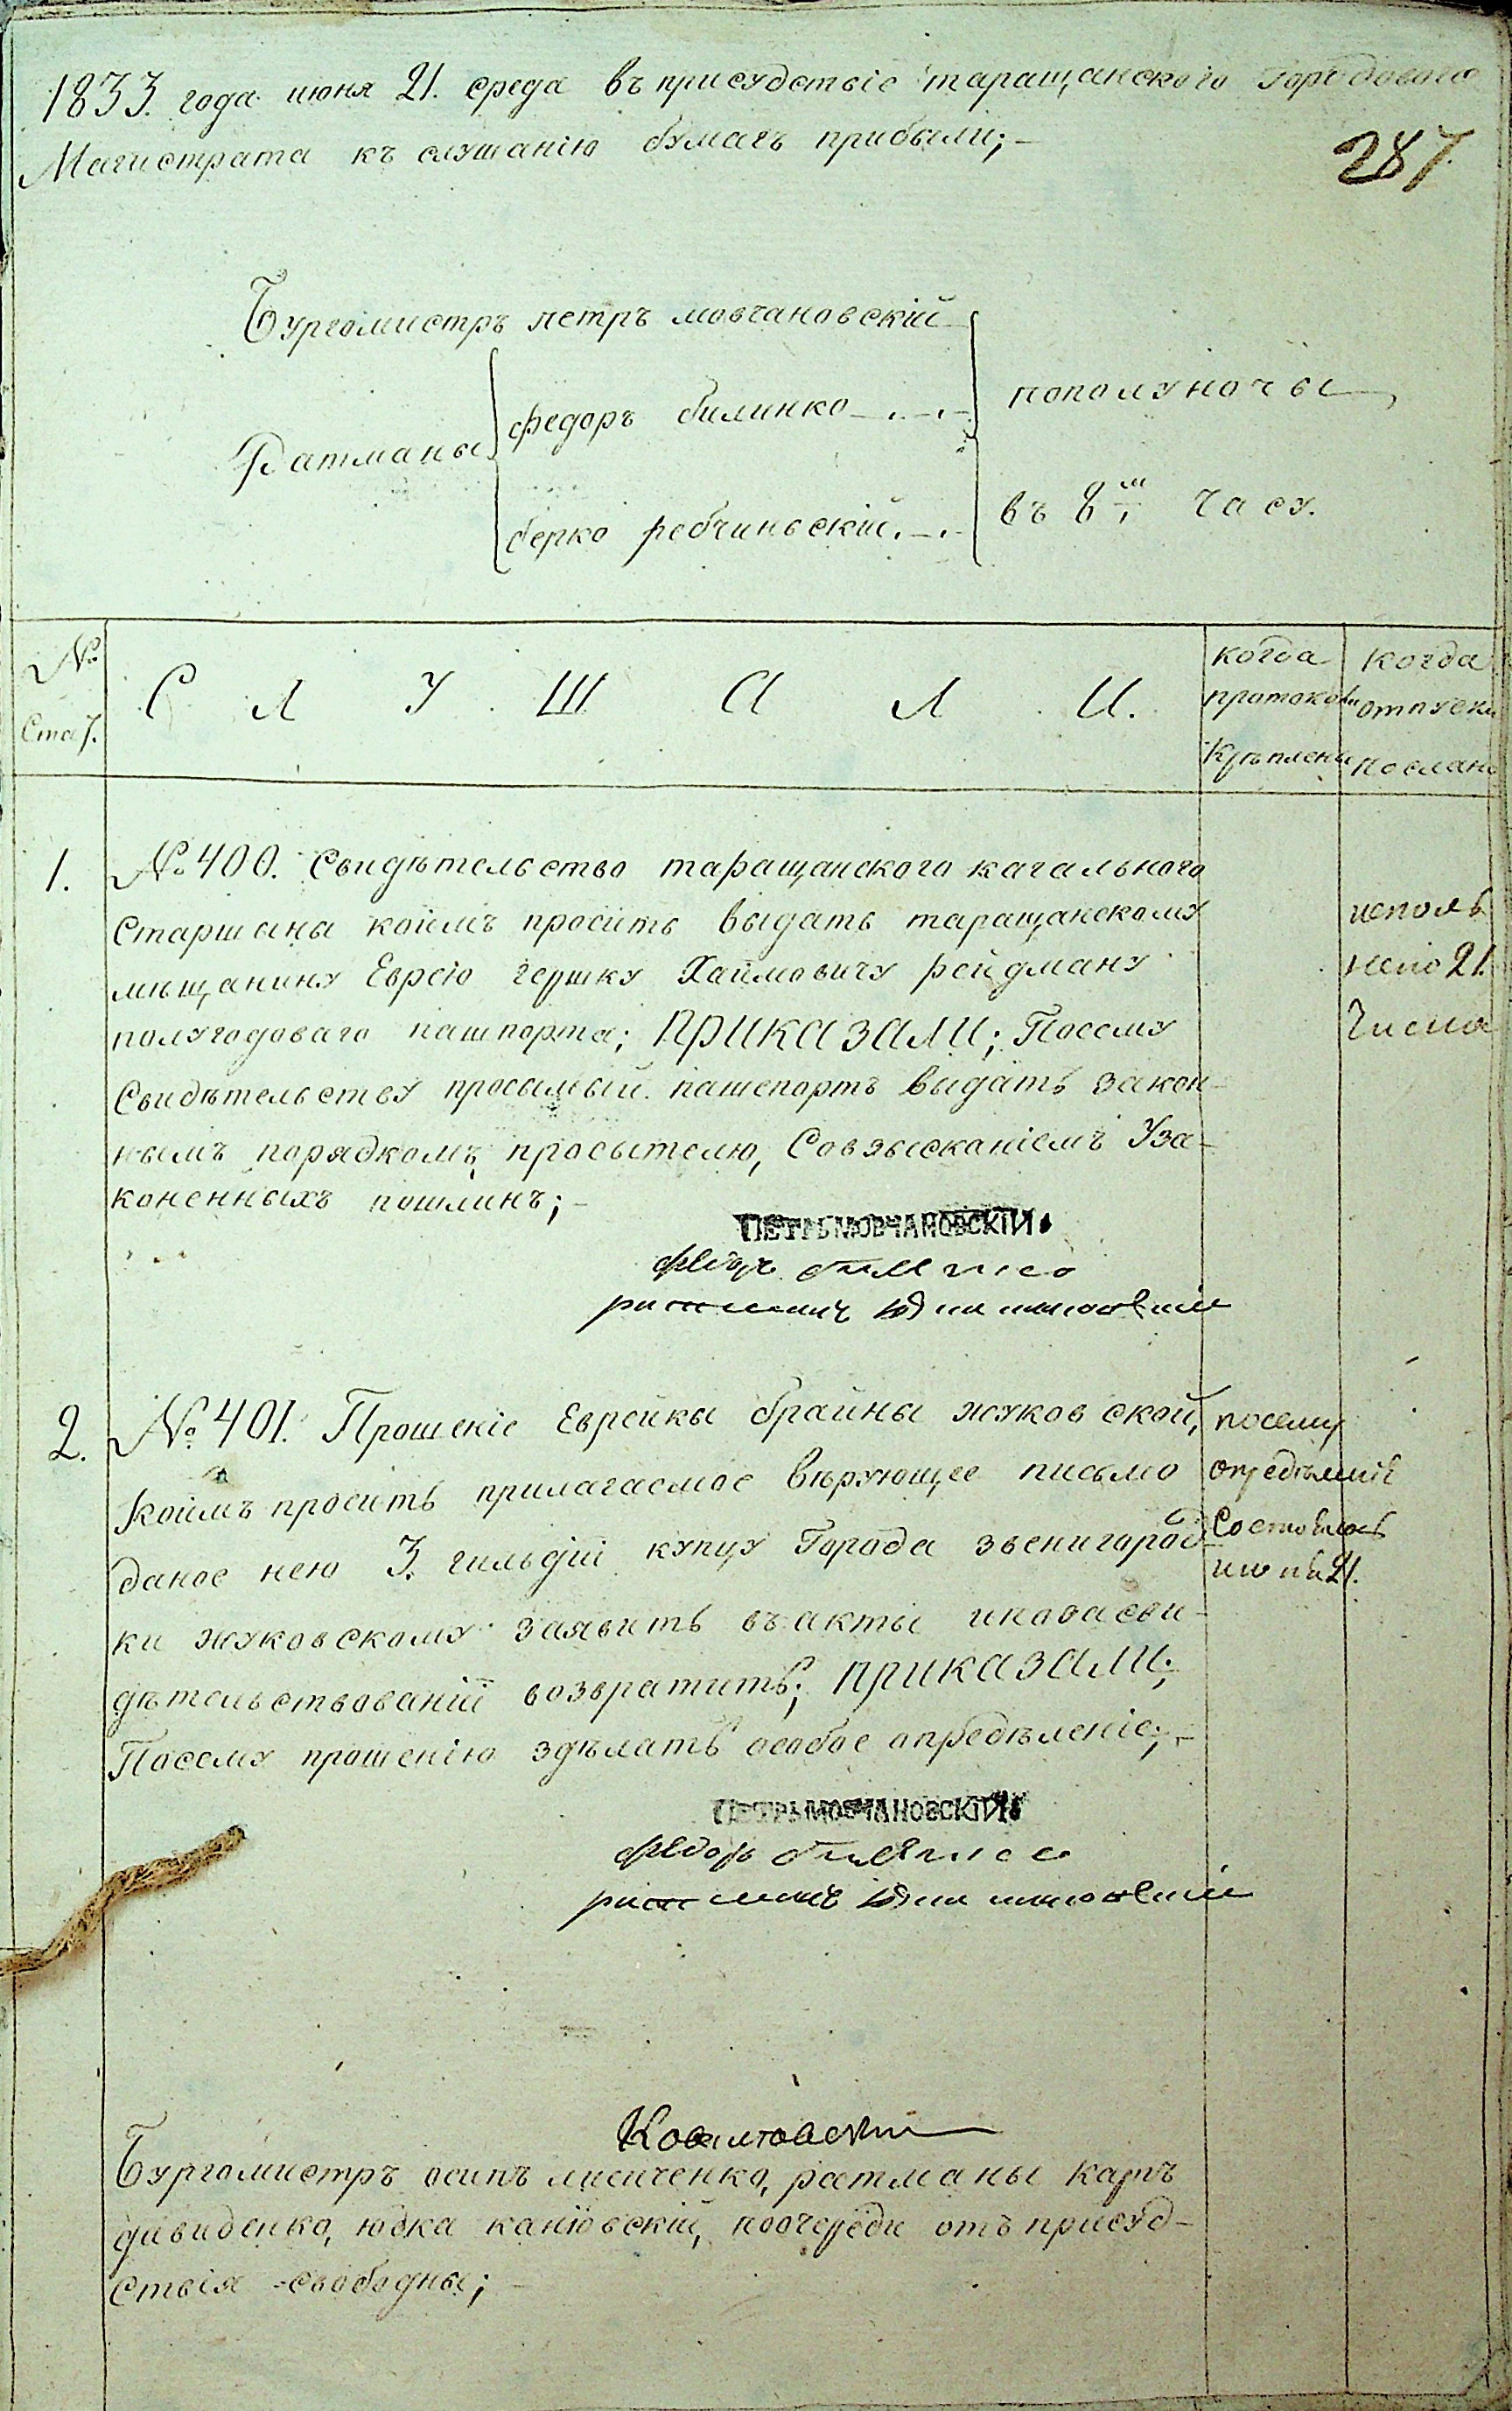 1833. года июня 21. среда въ присудствіе таращанского Городового
Магистрата къ слушанію бумагъ прибыли;-
287
Бургомистръ петръ мовчановскій
Ратманы
федоръ билинко
берко ребчиньскій
пополуночы
въ 8м часу.
№
Стат.
С Л У Ш А Л И.
когда
протоколы
крѣплены
когда
отпуски
посланы
1.
№ 400. Свидѣтельство таращанского кагального
Старшины коимъ просить выдать таращанскому
мищанину Еврею гершку Хаймовичу рейдману
полугодоваго пашпорта; Приказали; Посему
Свидѣтельству просымый пашепортъ выдать закон-
нымъ порядкомъ просытелю, Совзысканіемъ Уза-
коненныхъ пошлинъ;-
исполь
нено 21
Числа
ПЕТРЪ МОВЧАНОВСКІЙ
федоръ билинко
2.
№ 401. Прошеніе Еврейки брайны жуковской,
коимъ просить прилагаемое вѣрующее письмо
даное нею 3. гильдіи купцу Города звенигород-
ки жуковскому заявить въ акты ипозасви-
дѣтельствованіи возвратить; приказали;
Посему прошенію здѣлать особое опредѣленіе;-
посему
опредѣленіе
Состоялось
июня 21.
ПЕТРЪ МОВЧАНОВСКІЙ
федоръ билинко
Бургомистръ осипъ лисиченко, ратманы карпъ
дивиденко, юдка каніовскій, поочереди отъ присуд-
ствія свободны;-